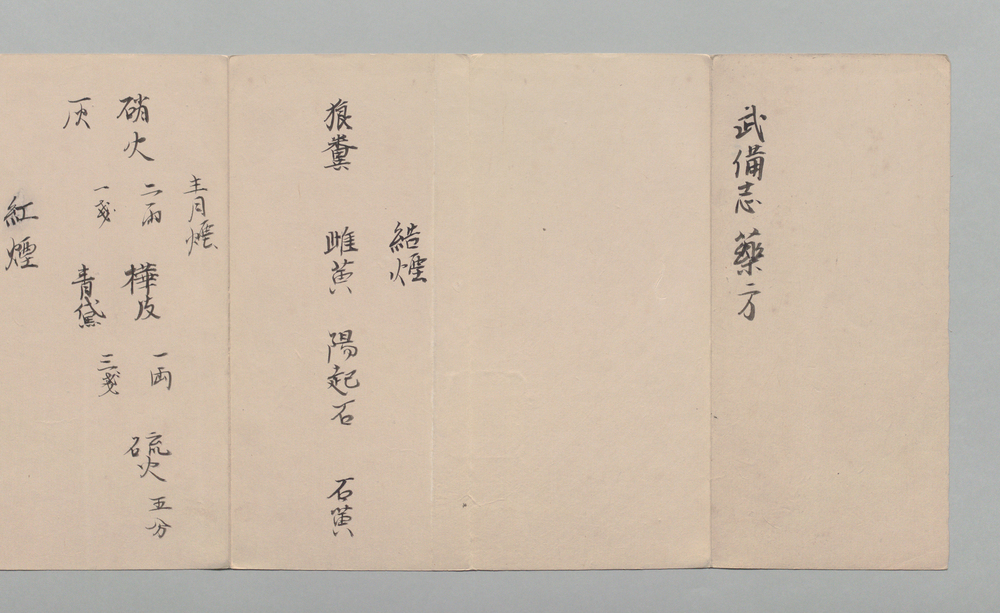 武備志藥方
結煙
狼糞 雌黄 陽起石 石黄
青煙
硝火 二兩 樺皮 一兩 硫火 五分
灰 一戔 青黛 三戔
紅煙